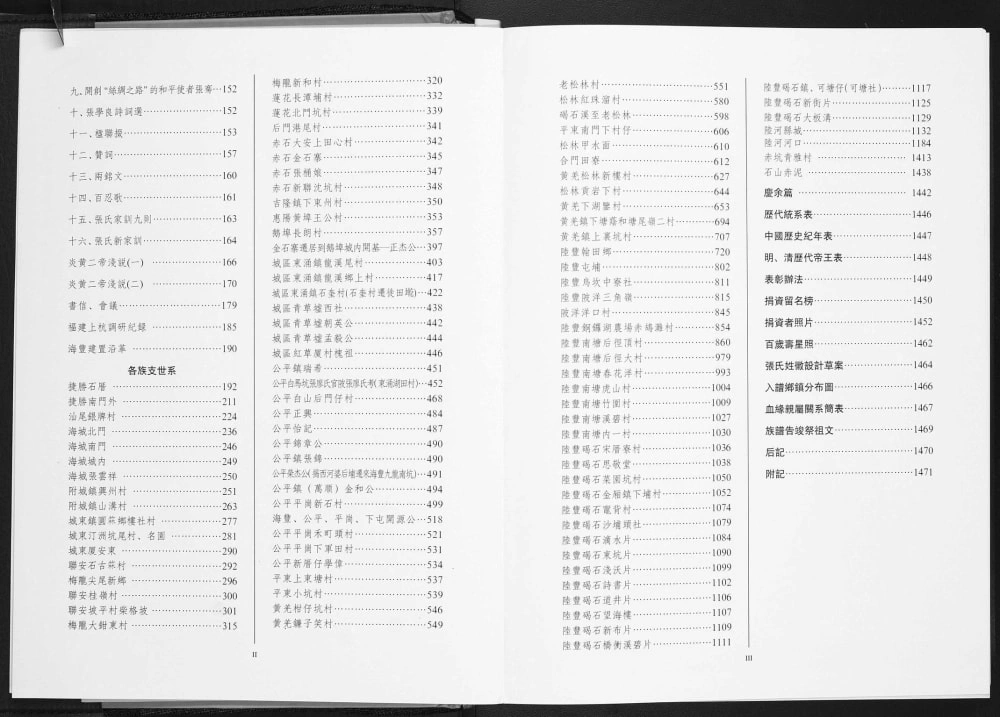 九、開創“絲綢之路”的和平使者張騫…152
十、張學良詩詞選…152
十一、楹聯援…153
十二、贊詞…157
十三、兩銘文…160
十四、百忍歌…161
十五、張氏家訓九則…163
十六、張氏新家訓…164
炎黃二帝淺說(一)…166
炎黃二帝淺說(二)…170
書信、會議…179
福建上杭調研紀錄…185
海豐建置沿革…190
各族支世系
捷勝石厝…192
捷勝南門外…211
汕尾銀牌村…224
海城北門…236
海城南門…246
海城城內…249
海城張雲祥…250
附城鎮興州村…251
附城鎮山溝村…263
城東鎮圓䓃鄉樓社村…277
城東汀洲坑尾村、名園…281
城東厦安東…290
聯安石古䓃村…292
梅隴尖尾新鄉…296
聯安桂嶺村…300
聯安坡平村柴格坡…301
梅隴大鉗東村…315
II
梅隴新和村…320
蓮花長潭埔村…332
蓮花北門坑村…339
后門港尾村…341
赤石大安上田心村…342
赤石金石寨…345
赤石張桶娘…347
赤石新聯沈坑村…348
吉隆鎮下東州村…350
惠陽黃埠王公村…353
鵝埠長朗村…357
金石寨遷居到鵝埠城內開基—正杰公…397
城區東涌鎮龍溪尾村…403
城區東涌鎮龍溪鄉上村…417
城區東涌鎮石奎村(石奎村遷徒田墘)…422
城區青草墟西社…438
城區青草墟朝英公…442
城區青草墟孟毅公…444
城區紅草厦村槐祖…446
公平鎮瑞希…451
公平白馬坑張廖氏官陂張廖氏考(東涌湖田村)…452
公平白山后門仔村…468
公平正興…484
公平怡記…487
公平錦章公…490
公平鎮張錦…490
公平榮杰公(揭西河婆后埔遷來海豐九龍南坑)…491
公平鎮（萬順）金和公…494
公平平崗新石村…499
海豐、公平、平崗、下屯開源公…518
公平平崗禾町頭村…521
公平平崗下軍田村…531
公平新厝仔學偉…534
平東上東塘村…537
平東小坑村…539
黃羌柑仔坑村…546
黃羌鑊子笑村…549
老松林村…551
松林紅珠溜村…580
碣石漢至老松林…598
平東南門下村仔…606
松林甲水面…610
合門田寮…612
黃羌松林新樓村…627
松林貢岩下村…644
黃羌下湖鑒村…653
黃羌鎮下塘蕗和塘尾嶺二村…694
黃羌鎮上裏坑村…707
陸豐翰田鄉…720
陸豐屯埔…802
陸豐烏坎中寮社…811
陸豐陂洋三角嶺…815
陂洋洋口村…845
陸豐銅鑼湖農場赤碼灘村…854
陸豐南塘后徑頂村…860
陸豐南塘后徑大村…979
陸豐南塘春花洋村…993
陸豐南塘虎山村…1004
陸豐南塘竹圍村…1009
陸豐南塘溪碧村…1027
陸豐南塘內一村…1030
陸豐碣石宋厝寮村…1036
陸豐碣石思敬堂…1038
陸豐碣石菜園坑村…1050
陸豐碣石金厢鎮下埔村…1052
陸豐碣石竈背村…1074
陸豐碣石沙埔頭社…1079
陸豐碣石滴水片…1084
陸豐碣石東坑片…1090
陸豐碣石淺沃片…1099
陸豐碣石詩書片…1102
陸豐碣石道井片…1106
陸豐碣石望海樓…1107
陸豐碣石新布片…1109
陸豐碣石橋衝溪碧片…1111
陸豐碣石鎮、可塘仔(可塘社)…1117
陸豐碣石新街片…1125
陸豐碣石大板溝…1129
陸河縣城…1132
陸河河口…1184
赤坑青雅村…1413
石山赤泥…1438
慶余篇…1442
歷代統系表…1446
中國歷史紀年表…1447
明、清歷代帝王表…1448
表彰辦法…1449
捐資留名榜…1450
捐資者照片…1452
百歲壽星照…1462
張氏姓徽設計草案…1464
入譜鄉鎮分布圖…1466
血緣親屬關系簡表…1467
族譜告竣祭祖文…1469
后記…1470
附記…1471
III